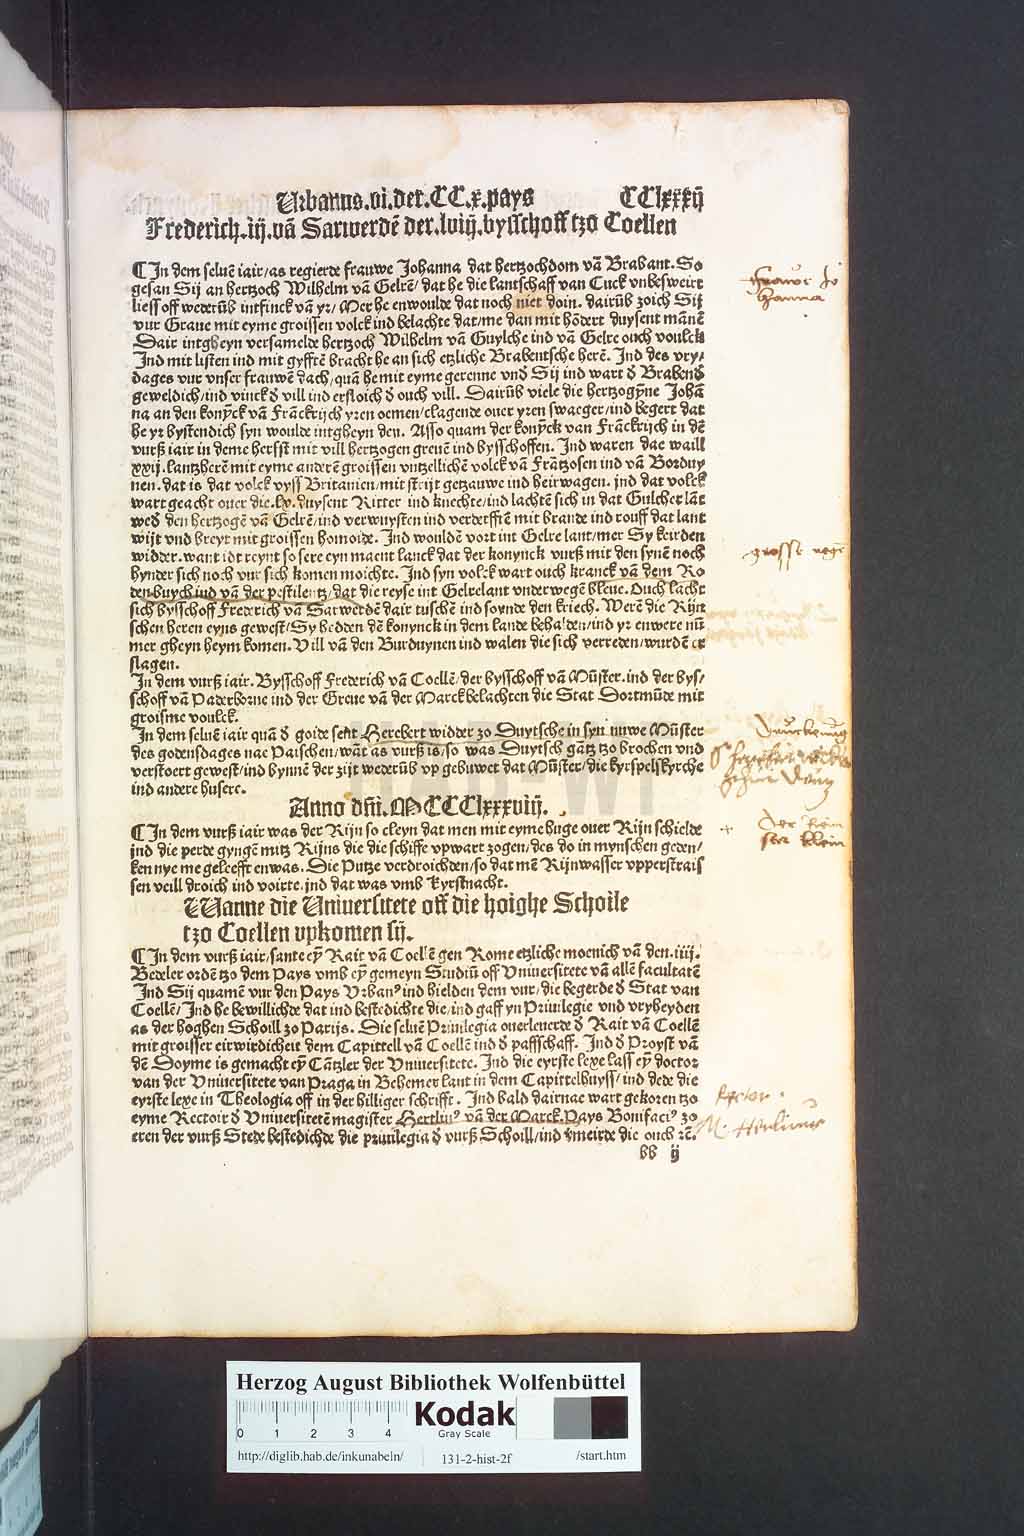 Urbanus.vi.der.CC.x.pays CClxxxij
Frederich.iij.vã Sarwerdẽ der.lviij.bysschoff tzo Coellen
¶ In dem seluẽ iair/as regierde frauwe Johanna dat hertzochdom vã Brabant. So
gesan Sij an hertzoch Wilhelm vã Gelrẽ/dat he die lantschaff van Cuck vnbesweirt
liess off wederũb intfinck vã yr/Mer he enwoulde dat noch niet doin. dairũb zoich Sij
vur Graue mit eyme groissen volck ind belachte dat/me dan mit hõdert duysent mãnẽ
Dair intgheyn versamelde hertzoch Wilhelm vã Guylche ind vã Gelre ouch voulck
Ind mit listen ind mit gyfftẽ bracht he an sich etzliche Brabentsche herẽ. Ind des vry/
dages vur vnser frauwẽ dach/quã he mit eyme gerenne vnd Sij ind wart d Brabend
geweldich/ind vinck d vill ind ersloich d ouch vill. Dairũb viele die hertzogyne Johã
na an den konyck vã Franckrijch yren oemen/clagende ouer yren swaeger/ind begert dat
he yr bystendich syn woulde intgheyn den. Also quam der konyck van Franckrijch in dẽ
vurß iair in deme herfst mit vill hertzogen greuẽ ind bysschoffen. Ind waren dae waill
xxij.lantzherẽ mit eyme anderẽ groissen vntzellichẽ volck vã Frãtzosen ind vã Borduy
nen. dat is dat volck vyss Britanien/mit strijt getzauwe ind heirwagen. ind dat volck
wart geacht ouer die.lx.duysent Ritter ind knechte/ind lachtẽ sich in dat Gulcher lãt
wed den hertzogẽ vã Gelrẽ/ind verwuysten ind verderfftẽ mit brande ind rouff dat lant
wijt vnd breyt mit groissen homoide. Ind wouldẽ vort int Gelre lant/mer Sy keirden
widder. want idt reynt so sere eyn maent lanck dat der konynck vurß mit den synẽ noch
hynder sich noch vur sich komen moichte. Ind syn volck wart ouch kranck vã dem Ro
den buych ind vã der pestilentz/dat die reyse int Gelrelant vnderwegẽ bleue. Ouch lacht
sich bysschoff Frederich vã Sarwerdẽ dair tuschẽ ind soynde den kriech. Werẽ die Rijn
schen heren eyns gewest/Sy hedden dẽ konynck in dem lande behalden/ind yr enwere nũ
mer gheyn heym komen. Vill vã den Burduynen ind walen die sich verreden/wurdẽ er
slagen.
In dem vurß iair. Bysschoff Frederich vã Coellẽ/der bysschoff vã Mũster. ind der bys/
schoff vã Paderborne ind der Greue vã der Marck belachten die Stat Dortmũde mit
groisme voulck.
In dem seluẽ iair quã d goide sent Herebert widder zo Duytsche in syn nuwe Mũster
des godensdages nae Paischen/wãt as vurß is/so was Duytsch gãtz tzo brochen vnd
verstoert gewest/ind bynnẽ der zijt wederũb vp gebuwet dat Mũster/die kyrspelskyrche
ind andere husere.
Anno dñi.MCCClxxxviij.
¶ In dem vurß iair was der Rijn so cleyn dat men mit eyme buge ouer Rijn schielde
ind die perde gyngẽ mitz Rijns die die schiffe vpwart zogen/des do in mynschen geden/
ken nye me geleefft enwas. Die Putze verdroichden/so dat mẽ Rijnwasser vpperstrais
sen veill droich ind voirte. ind dat was vmb kyrstnacht.
Wanne die Uniuersitete off die hoighe Schoile
tzo Coellen vpkomen sij.
¶ In dem vurß iair/sante eỹ Rait vã Coellẽ gen Rome etzliche moenich vã den.iiij.
Bedeler ordẽ tzo dem Pays vmb eỹ gemeyn Studiũ off Vniuersitete vã allẽ facultatẽ
Ind Sij quamẽ vur den Pays Vrban⁹ ind hielden dem vur/die begerde d Stat van
Coellẽ/Ind he bewillichde dat ind bestedichte die/ind gaff yn Priuilegie vnd vryheyden
as der hoghen Schoill zo Parijs. Die seluẽ Priuilegia ouerleuerde d Rait vã Coellẽ
mit groisser eirwirdicheit dem Capittell vã Coellẽ ind d paffschaff. Ind d Proyst vã
dẽ Doyme is gemacht eỹ Cãtzler der Vniuersitete. Ind die eyrste lexe lass eỹ doctor
van der Vniuersitete van Praga in Behemer lant in dem Capittelhuyss/ind dede die
eyrste lexe in Theologia off in der hilliger schrifft. Ind bald dairnae wart gekoren tzo
eyme Rectoir d Vniuersitetẽ magister Hertlin⁹ vã der Marck. Pays Bonifaci⁹ zo
eren der vurß Stede bestedichde die priuilegia d vurß Schoill/ind vmeirde die ouch ꝛc̃.
bb ij
Frawe Jo
hanna
grosse rege
Der Rein
seer klein
Rector
M. Hertlinus
Herzog August Bibliothek Wolfenbüttel
0 1 2 3 4 Kodak
Gray Scale
http://diglib.hab.de/inkunabeln/ 131-2-hist-2f /start.htm